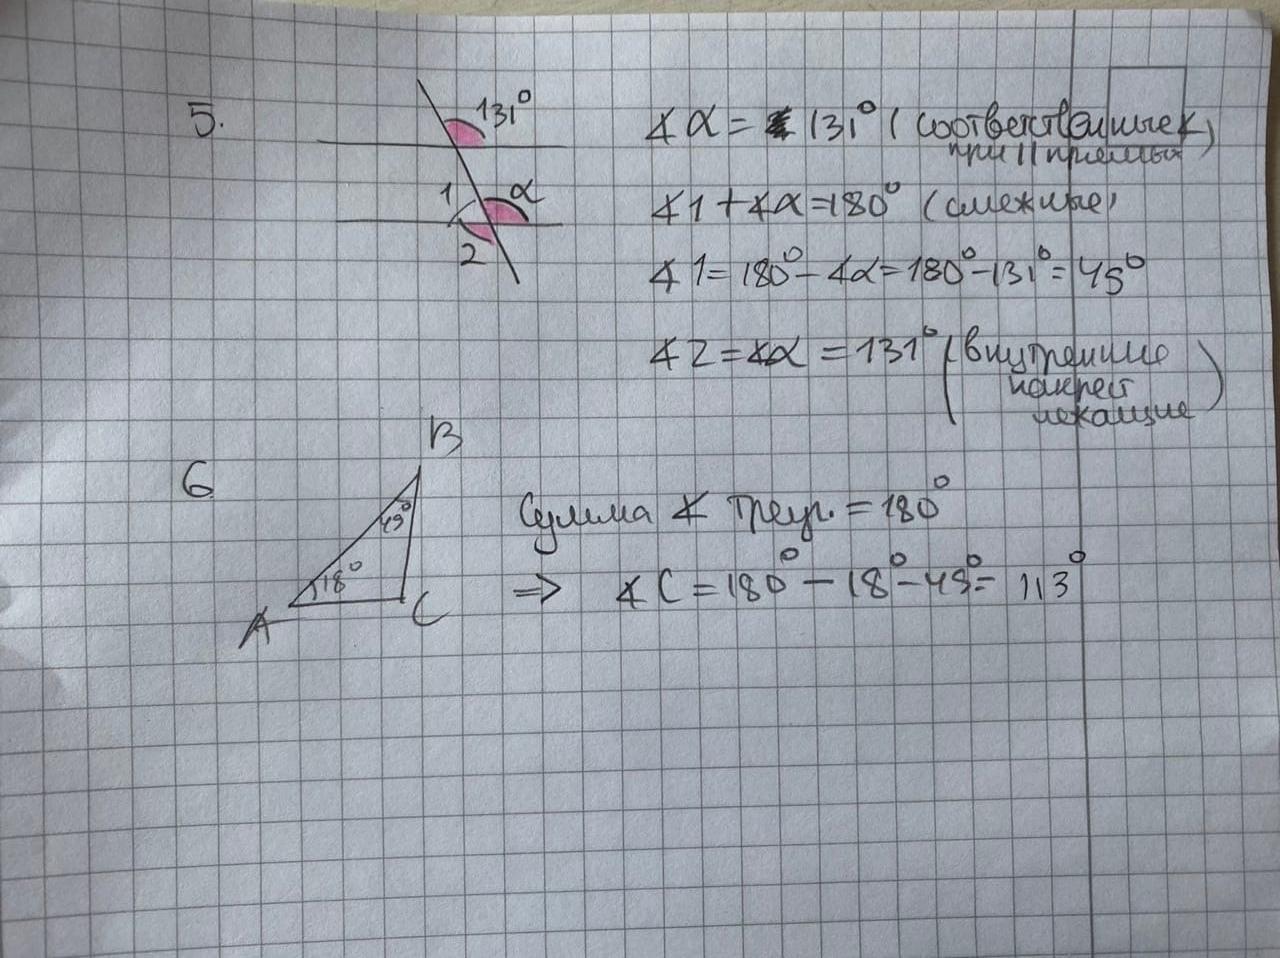 5.
131°
1
α
2
∡α = 131° (соответственные ∡)
при || прямых
∡1 + ∡α = 180° (смежные)
∡1 = 180° - ∡α = 180° - 131° = 49°
∡2 = ∡α = 131° (внутренние
накрест
лежащие)
6
B
49°
18°
A
C
Сумма ∡ треуг. = 180°
⇒ ∡C = 180° - 18° - 49° = 113°